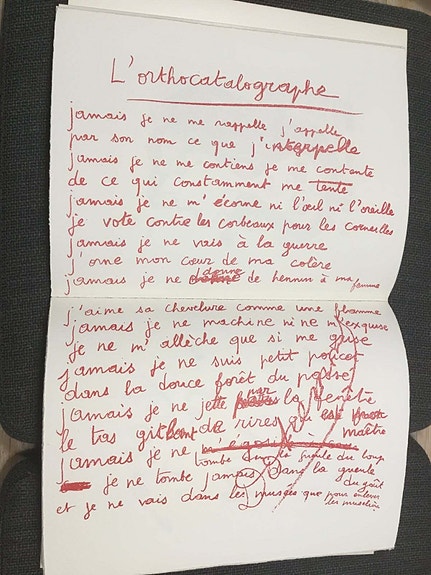 L'orthocatalographe
jamais je ne me rappelle j'appelle
par son nom ce que j'interpelle
jamais je ne me contiens je me contente
de ce qui constamment me tente
jamais je ne m'écorne ni l'œil ni l'oreille
je vote contre les corbeaux pour les corneilles
jamais je ne vais à la guerre
j'orne mon cœur de ma colère
jamais je ne donne de hennin à ma femme
j'aime sa chevelure comme une flamme
jamais je ne machine ni ne m'excuse
je ne m'allèche que si me
jamais je ne suis petit poucet
dans la douce forêt du passé
jamais je ne jette par la fenêtre
le tas de rires qui est maître
jamais je ne
tombe dans la gueule du loup
je ne tombe jamais dans la gueule du goût
et je ne vais dans les musées que pour enlever
les muselières